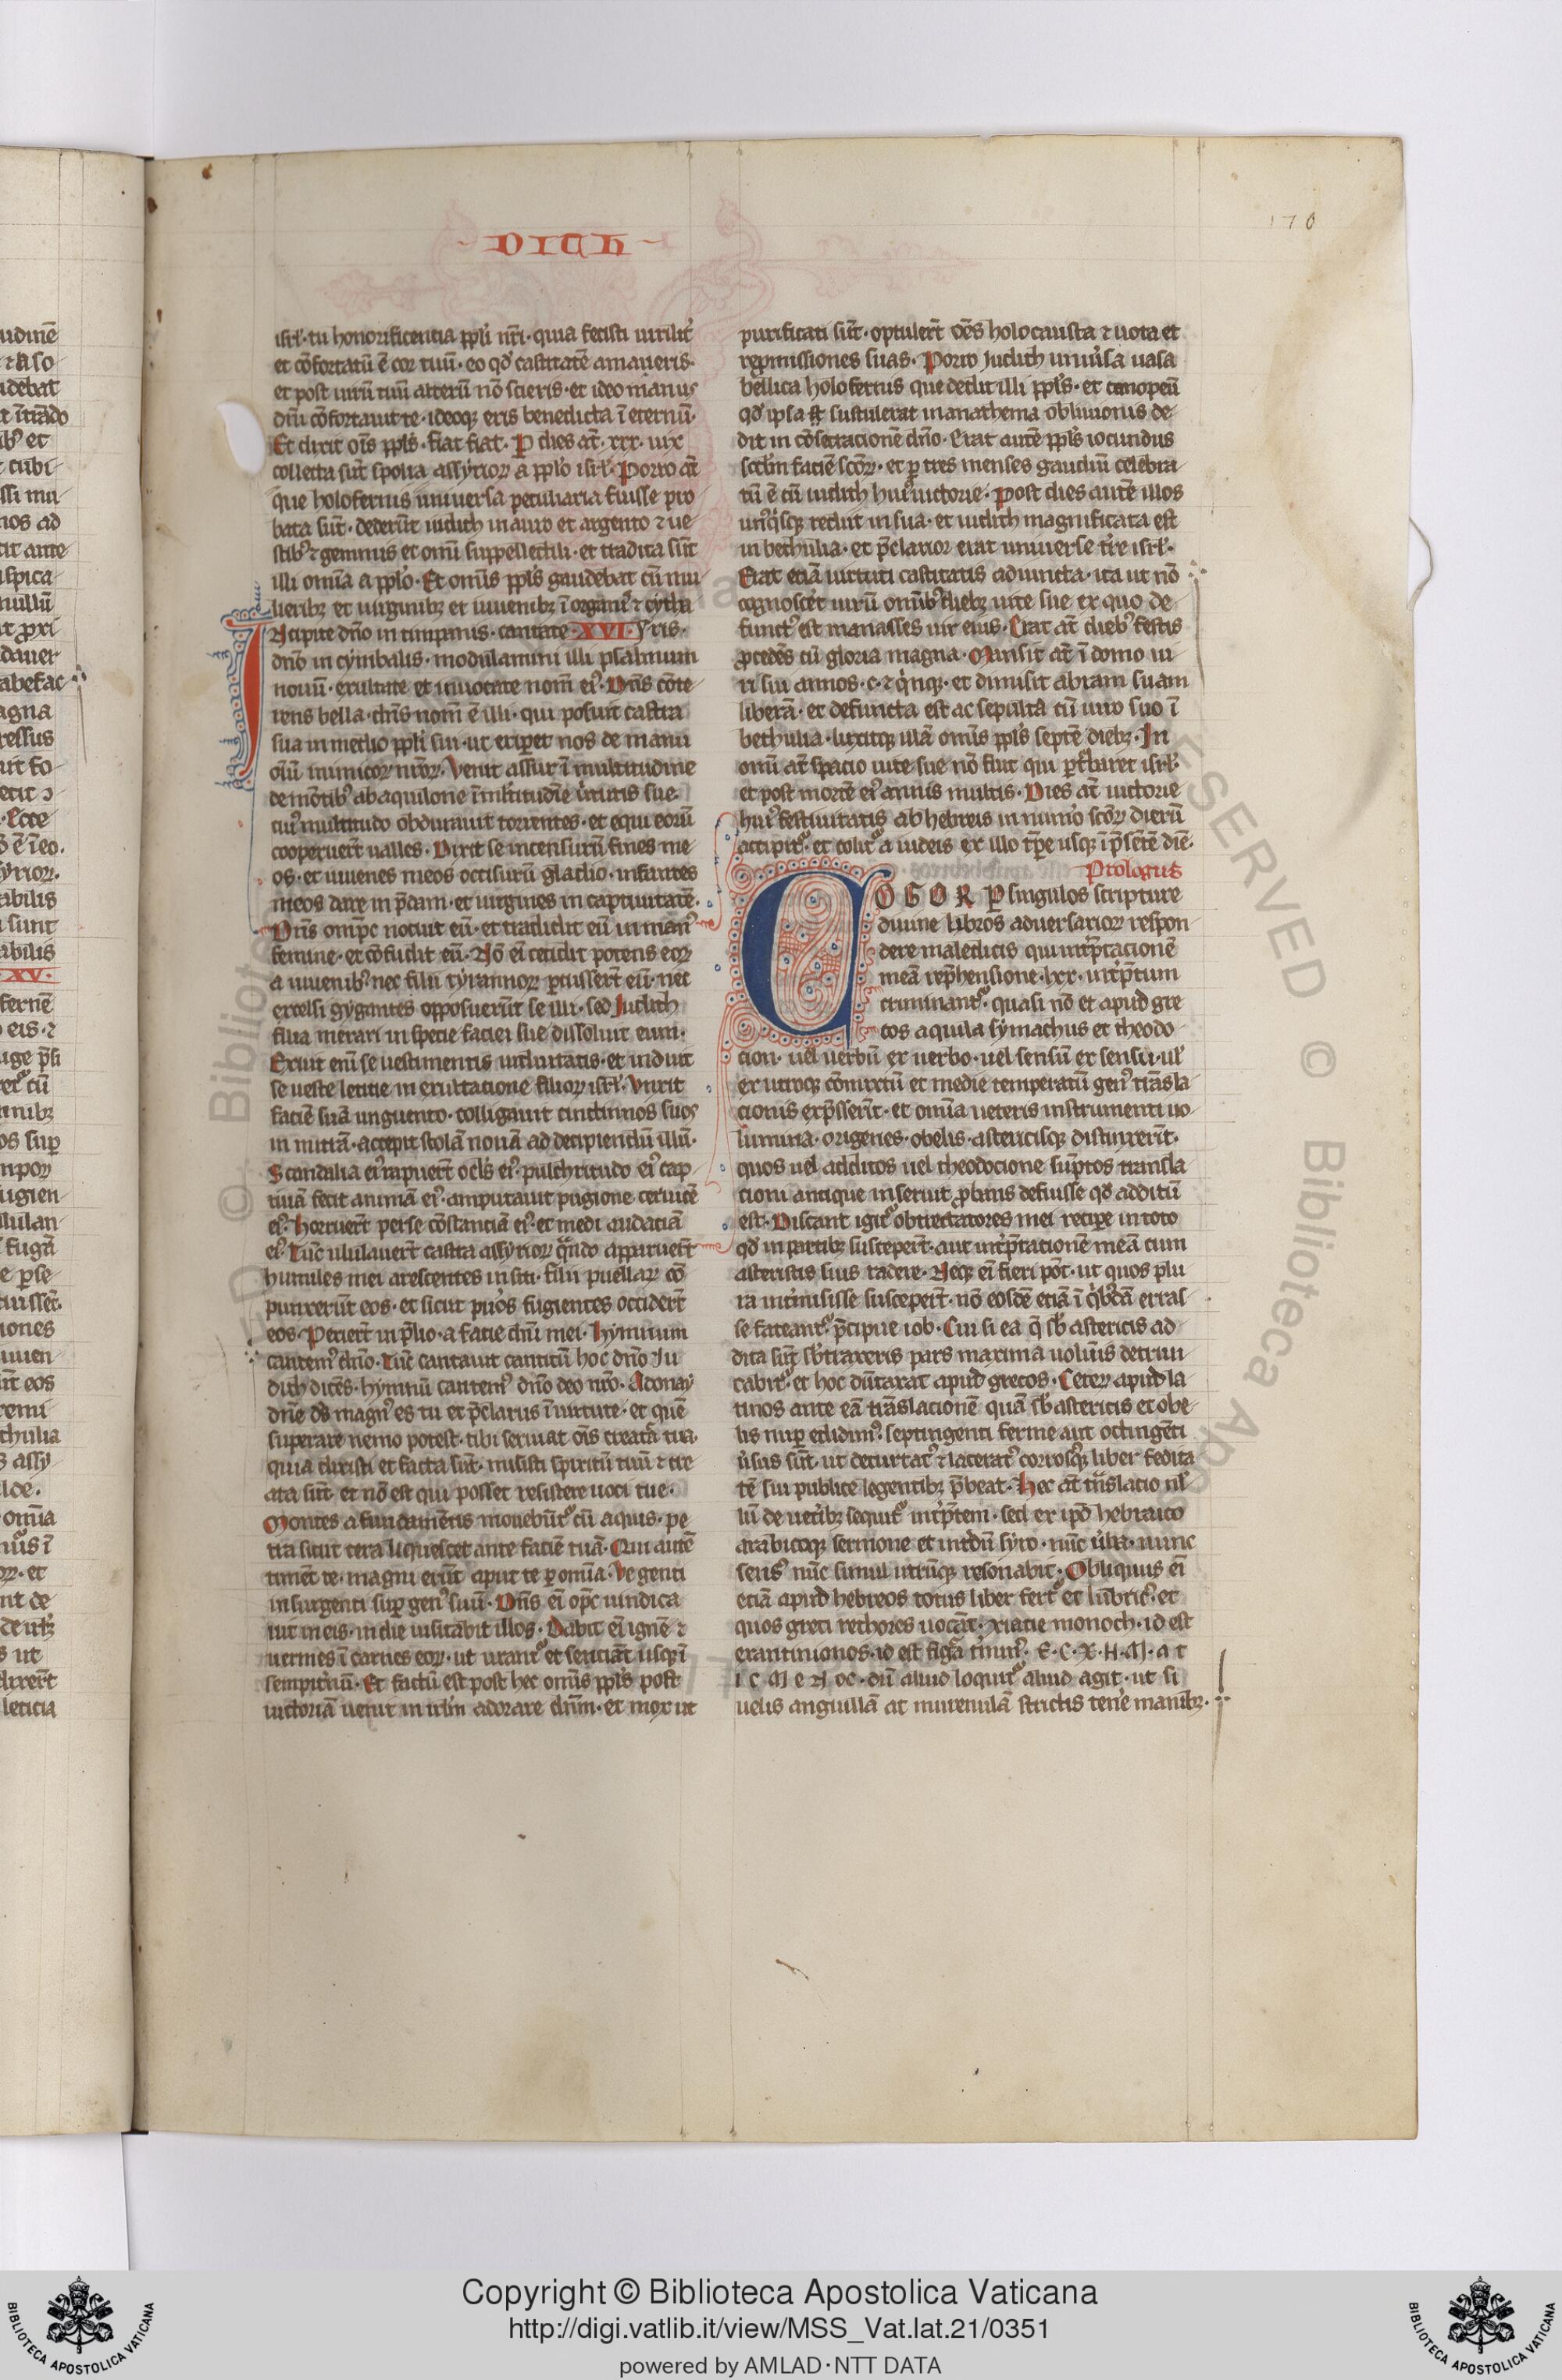 udinē
idebat
ib⁹ et
cubi
nos ad
cit ante
ispica
nullū
agna
abilis
abilis
·XV·
ferne
anib⁊
ugien
fugā
iones
ūt eos
thulia
omīa
s ut
leticia
DITH
isrl̄· tu honorificentia ppl̄i nr̄i· quia fecisti uirilit̄
et cōfortatū ē cor tuū· eo qd̓ castitatē amaueris·
et post uirū tuū alterū nō scieris· et ideo manus
dn̄i cōfortauit te· ideoq; eris benedicta ī eternū·
Et dixit om̄s ppl̄s· fiat fiat· P dies at̄· xxx· uix
collecta sūt spolia assyrior⁊ a ppl̄o isrl̄· Porro at̄
que holofernis uniuersa peculiaria fuisse pro
bata sūt· dederūt iudith in auro et argento ⁊ ue
stib⁹ ⁊ gemmis et om̄i suppellectili· et tradita sūt
illi om̄ia a ppl̄o· Et om̄is ppl̄s gaudebat cū mu
lierib⁊ et uirginib⁊ et iuuenib⁊ ī organis ⁊ cytha
Incipite dn̄o in timpanis· cantate ·XVI· ris·
dn̄o in cymbalis· modulamini illi psalmum
nouū· exultate et inuocate nom̄ ei⁹· Dn̄s cōte
rens bella· dn̄s nom̄ ē illi· qui posuit castra
sua in medio ppl̄i sui· ut eriꝑet nos de manu
oīū inimicor⁊ nr̄or⁊· Venit assur ī multitudine
de mōtib⁹ ab aquilone ī multitudīe ūtutis sue·
cui⁹ multitudo obdurauit torrentes· et equi eorū
cooperuer̄t ualles· Dixit se incensurū fines me
os· et iuuenes meos occisurū gladio· infantes
meos dare in p̄dam· et uirgines in captiuitatē·
Dn̄s om̄ps nocuit eū· et tradidit eū in man⁹
femine· et cōfudit eū· Nō ei cecidit potens eor⁊
a iuuenib⁹ nec filii tyrannor⁊ ꝑcusser̄t eū· nec
excelsi gygantes opposuerūt se illi· sed Judith
filia merari in specie faciei sue dissoluit eum·
Exuit enī se uestimentis uiduitatis· et induit
se ueste letitie in exultatione filior⁊ isrl̄· Vnxit
faciē suā unguento· colligauit cincinnos suos
in mitrā· accepit stolā nouā ad decipiendū illū·
Scandalia ei⁹ rapuer̄t ocl̄s ei⁹· pulchritudo ei⁹ cap
tiuā fecit animā ei⁹· amputauit pugione ceruicē
ei⁹· Horruer̄t perse cōstanciā ei⁹· et medi audaciā
ei⁹· Tūc ululauer̄t castra assyrior⁊ qn̄do apparuer̄t
humiles mei arescentes in siti· filii puellar⁊ cō
punxerūt eos· et sicut pūos fugientes occider̄t
eos· Perier̄t in p̄lio· a facie dn̄i mei· Hymnum
cantem⁹ dn̄o· Tūc cantauit canticū hoc dn̄o Ju
dith dicēs· hymnū cantem⁹ dn̄o deo nr̄o· Adonay
dn̄e ds̄ magn⁹ es tu et p̄clarus ī uirtute· et quē
superare nemo potest· tibi seruiat om̄is creatā tua·
quia dixisti et facta sūt· misisti spiritū tuū ⁊ cre
ata sūt· et nō est qui posset resistere uoci tue·
Montes a fundamētis mouebūt̄ cū aquis· pe
tra sicut cera liquescet ante faciē tuā· Qui autē
timēt te· magni erūt aput te ꝑ omīa· Ve genti
insurgenti suꝑ gen⁹ suū· Dn̄s ei opc̄ uindica
uit in eis· in die uisitabit illos· Dabit ei ignē ⁊
uermes ī carnes eor⁊· ut urant̄ et senciāt usq; ī
sempit̄nū· Et factū est post hec om̄is ppl̄s post
uictoriā uenit in irl̄m adorare dn̄m· et mox ut
170
purificati sūt· optuler̄t oēs holocausta ⁊ uota et
repromissiones suas· Porro Judith uniūsa uasa
bellica holofernis que dedit illi ppl̄s· et canopeū
qd̓ ipsa sustulerat in anathema obliuionis de
dit in cōsecracionē dn̄o· Erat autē ppl̄s iocundus
scdm faciē scōr⁊· et ꝑ tres menses gaudiū celebra
tū ē cū iudith hui⁹ uictorie· Post dies autē illos
un⁹q̄sq; rediit in sua· et iudith magnificata est
in bethulia· et p̄clarior erat uniuerse t̄re isrl̄·
Erat etiā uirtuti castitatis adiuncta· ita ut nō
cognoscet̄ uirū om̄ib⁹ dieb⁊ uite sue ex quo de
funct⁹ est manasses uir eius· Erat at̄ dieb⁹ festis
ꝓcedēs cū gloria magna· Mansit at̄ ī domo ui
ri sui annos· c· ⁊ q̄nq;· et dimisit abram suam
liberā· et defuncta est ac sepulta cū uiro suo ī
bethulia· luxitq; illā om̄is ppl̄s septē dieb⁊· In
om̄i at̄ spacio uite sue nō fuit qui ꝑt̄baret isrl̄·
et post mortē ei⁹ annis multis· Dies at̄ uictorie
hui⁹ festiuitatis ab hebreis in num̄o scōr⁊ dierū
accipit̄· et colit̄ a iudeis ex illo tp̄e usq; ī p̄sētē diē·
Prologus
COGOR P singulos scripture
diuine libros aduersarior⁊ respon
dere maledictis qui inṫp̄tacionē
meā rep̄hensione· lxx· inṫp̄tum
criminant̄· quasi nō et apud gre
cos aquila symachus et theodo
cion· uel uerbū ex uerbo· uel sensū ex sensu· ul̄
ex utroq; cōmixtū et medie temperatū gen⁹ trāsla
cionis exp̄sserīt· et omīa ueteris instrumenti uo
lumina· origenes· obelis· astericisq; distinxerīt·
quos uel additos uel theodocione sūptos transla
cioni antique inseruit ꝓbans defuisse qd̓ additū
est· Discant igit̄ obtrectatores mei recipe in toto
qd̓ in partib⁊ susceper̄t· aut inṫp̄tacionē meā cum
asteriscis suis radere· Neq; ei fieri pōt· ut quos plu
ra int̄misisse susceper̄t· nō eosdē etiā ī q̄b⁹dā erras
se fateant̄· p̄cipue iob· Cui si ea q̄ sb̄ astericis ad
dita sūt sb̄traxeris pars maxima uolūis detrun
cabit̄· et hoc dūtaxat apud grecos· Ceter⁊ apud la
tinos ante eā trāslacionē quā sb̄ astericis et obe
lis nuꝑ edidim⁹· septingenti ferme aut octingēti
ūsus sūt· ut decurtat⁹ ⁊ lacerat⁹ corrosq; liber fedita
tē sui publice legentib⁊ p̄beat· Hec at̄ trāslacio nl̄
lū de uet̄ib⁊ sequit̄ inṫp̄tem· sed ex ip̄o hebraico
arabicoq; sermone et int̄dū syro· nūc ūba· nunc
sens⁹ nūc simul utrūq; resonabit· Obliquus ei
etiā apud hebreos totus liber fert̄ et lubric⁹· et
quos greci rethores uocāt· xiacie monoch· id est
exantinionos· id est figā t̄min⁹· E·C·X·H·M·A T
I C M E N OC· dū aliud loquit̄ aliud agit· ut si
uelis anguillā at murenulā strictis tene manib⁊·
Copyright © Biblioteca Apostolica Vaticana
http://digi.vatlib.it/view/MSS_Vat.lat.21/0351
powered by AMLAD·NTT DATA
BIBLIOTECA APOSTOLICA VATICANA
BIBLIOTECA APOSTOLICA VATICANA